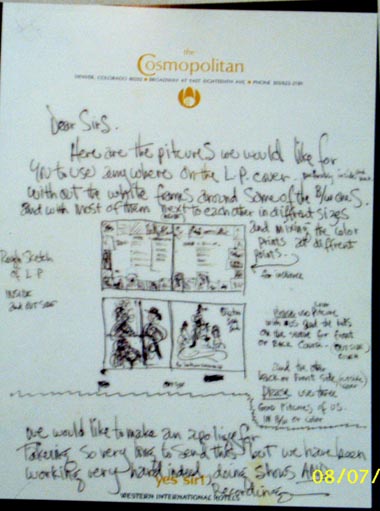 the
Cosmopolitan
DENVER, COLORADO 80202 • BROADWAY AT EAST EIGHTEENTH AVE. • PHONE 303/623-2181
Dear Sirs.
Here are the pitcures we would like for
you to use anywhere on the L.P. cover.
with out the white frames around some of the B/W ones.
and with most of them next to each other in diffrent sizes
and mixing the color
prints at diffrent
points.
for instance
Rough sketch
of L P
INSIDE
and OUT SIDE
Please use pitcure
with us and the kids
on the statue for front
or Back Cover
and the other
back or Front side
Please use three
Good Pitcures of us.
in B/W or color
we would like to make an apology for
taking so very long to send this but we have been
working very hard indeed doing shows AND
Recording
yes sir!
WESTERN INTERNATIONAL HOTELS
08/07/